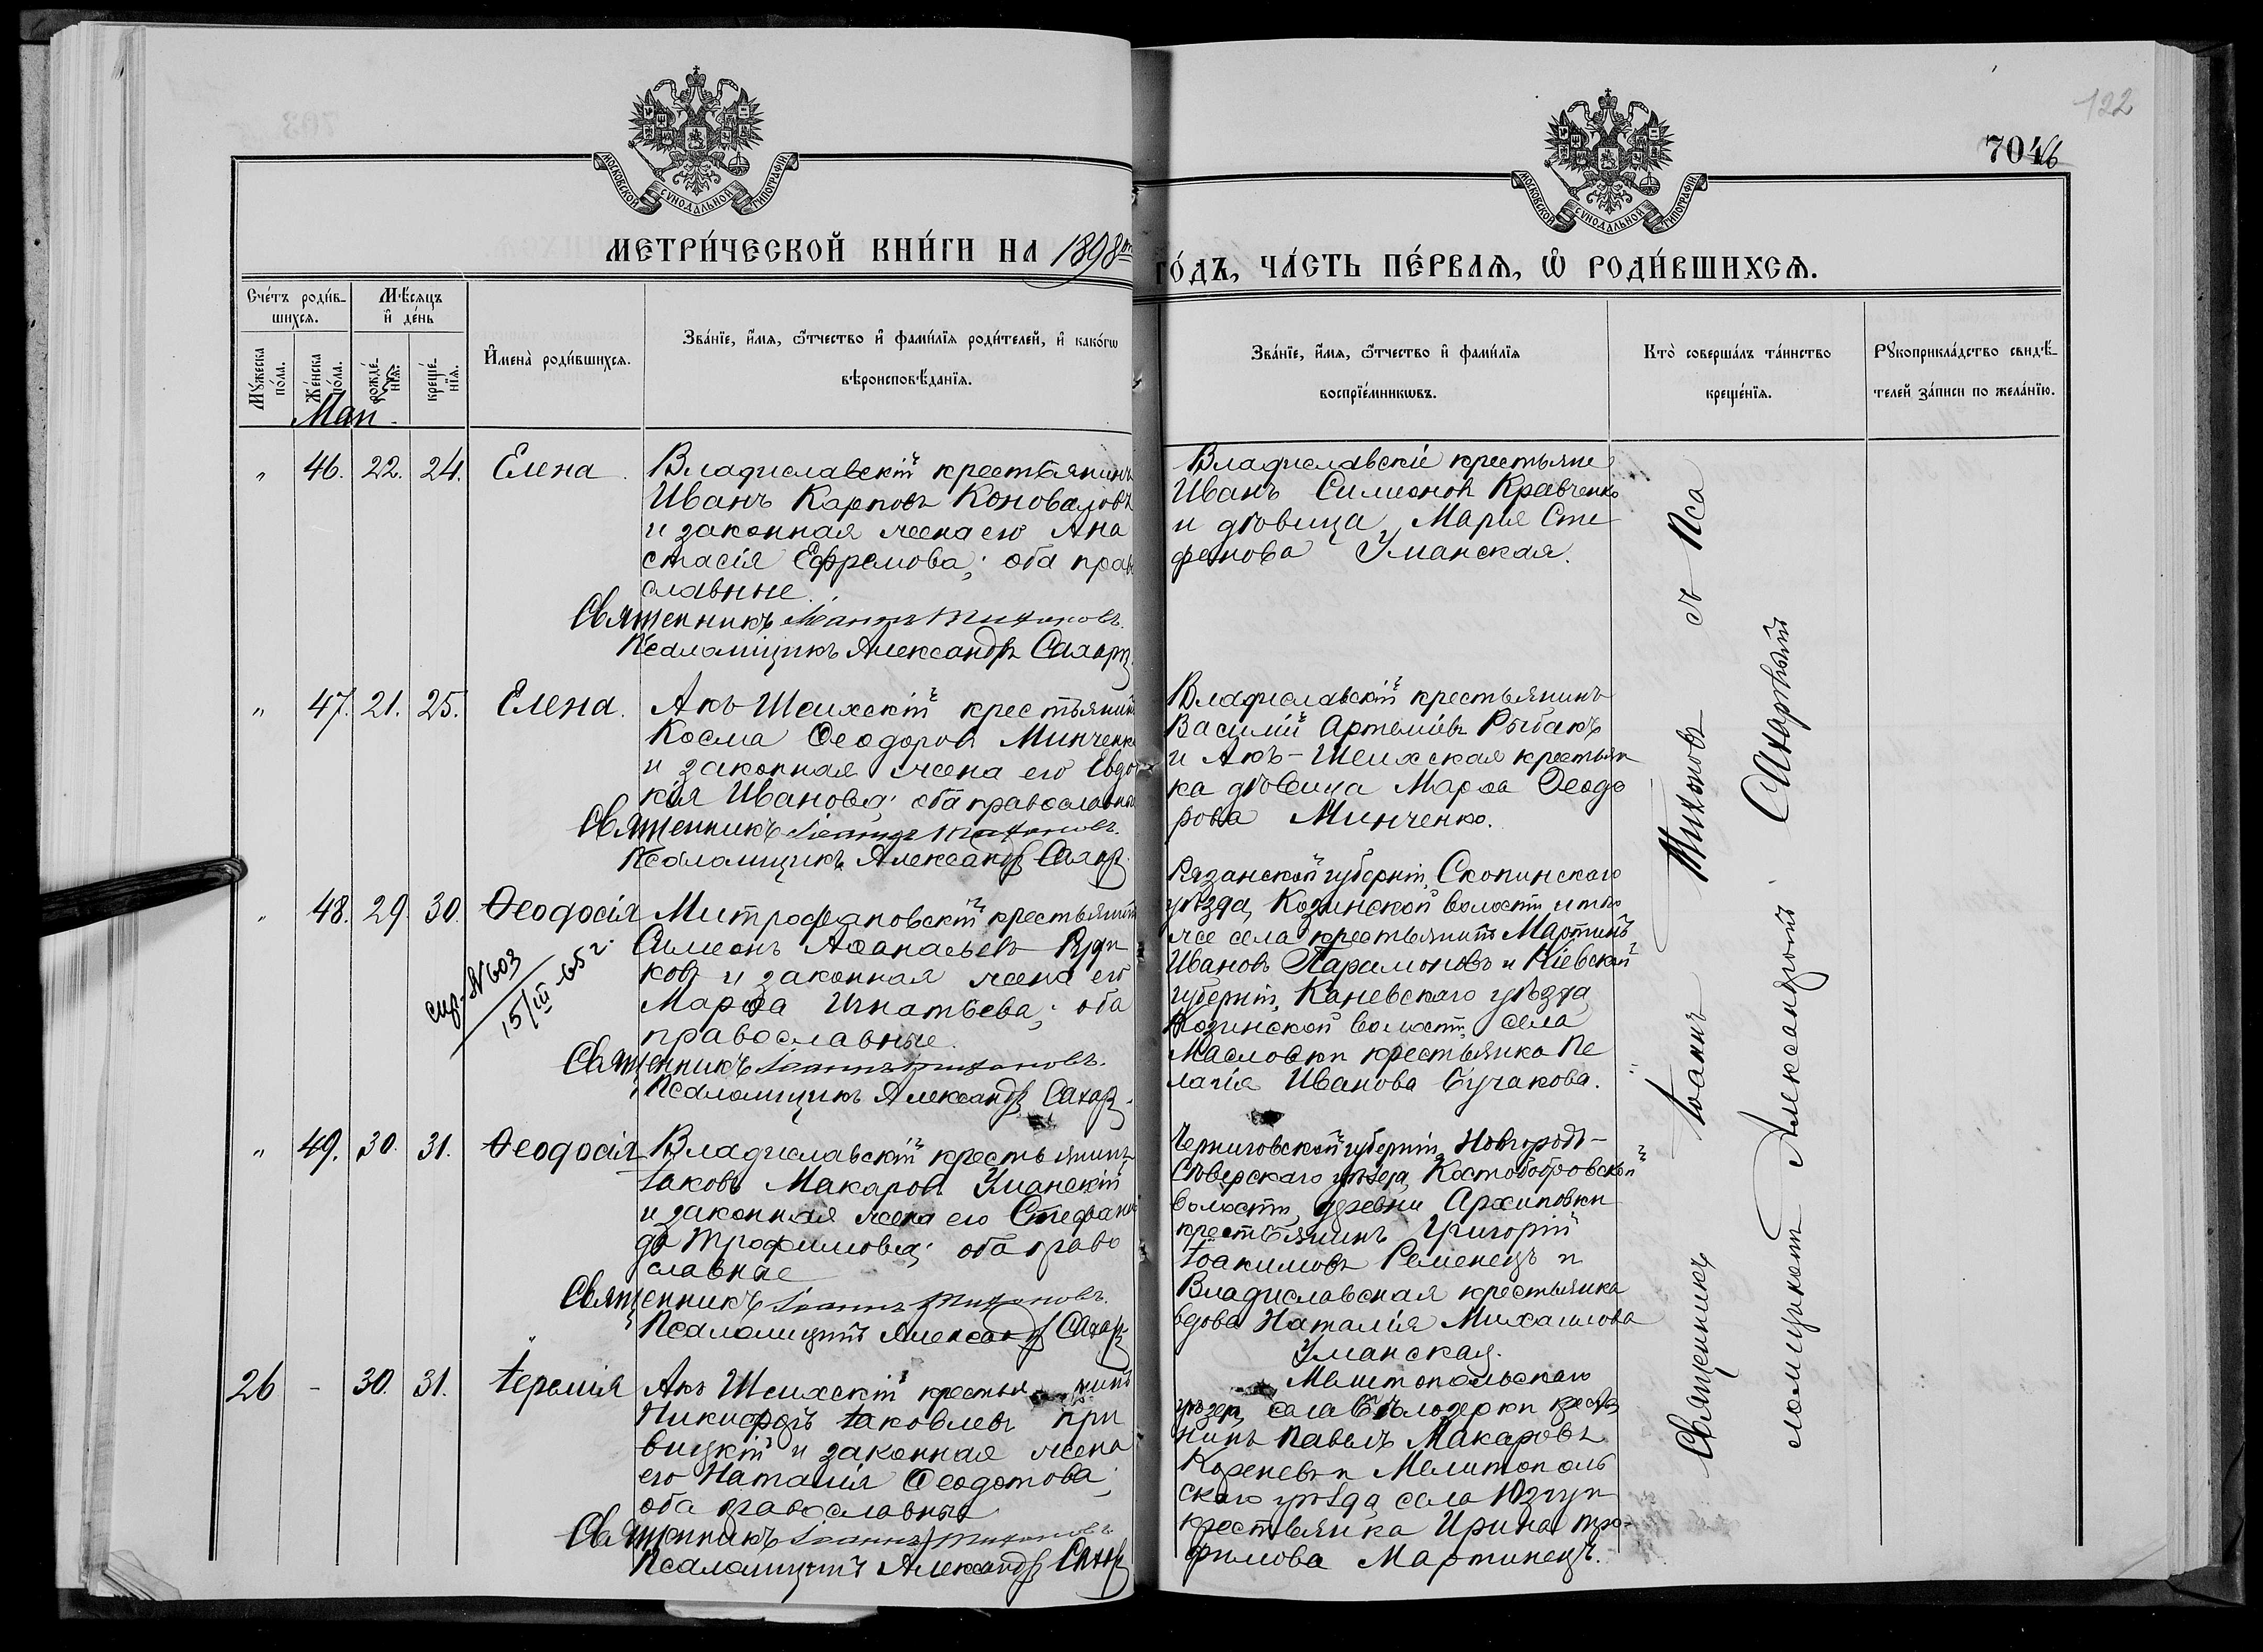 122
7046
МОСКОВСКОЙ СѴНОДАЛЬНОЙ ТИПОГРАФІИ
МОСКОВСКОЙ СѴНОДАЛЬНОЙ ТИПОГРАФІИ
МЕТРИ́ЧЕСКОЙ КНИ́ГИ НА 1898
ГО́ДЪ, ЧА́СТЬ ПЕ́РВАѦ, Ѡ РОДИ́ВШИХСѦ.
Сче́тъ роди́в-
шихсѧ.
Мѣ́сѧцъ
и҆ де́нь
Мꙋ́жеска
по́ла.
Же́нска
по́ла.
рожде́-
нїѧ.
креще́-
нїѧ.
И҆мена̀ роди́вшихсѧ.
Зва́нїе, и҆́мѧ, ѻ҆́тчество и҆ фами́лїѧ роди́телей, и҆ како́гѡ
вѣроисповѣ́данїѧ.
Зва́нїе, и҆́мѧ, ѻ҆́тчество и҆ фами́лїѧ
воспрїе́мникѡвъ.
Кто̀ соверша́лъ та́инство
креще́нїѧ.
Рꙋкоприкла́дство свидѣ́-
телей за́писи по жела́нїю.
Маи
" 46. 22. 24. Елена
Владиславскій крестьянинъ
Иванъ Карповъ Коноваловъ
и законная жена его Ана
стасія Ефремова; оба прав
славные.
Священникъ Іоаннъ Тихоновъ.
Псаломщикъ Александръ Сахар
Владиславскіе крестьяне
Иванъ Симеоновъ Кравченко
и дѣвица Марія Сте
фанова Уманская.
" 47. 21. 25. Елена.
Акъ Шеихскій крестьянинъ
Косма Ѳеодоровъ Минченко
и законная жена его Евдо
кія Иванова; оба православные
Священникъ Іоаннъ Тихоновъ.
Псаломщикъ Александръ Сахар
Владиславскій крестьянинъ
Василій Артеміевъ Рыбакъ
и Акъ-Шеихская крестьян
ка дѣвица Марѳа Ѳеодо
рова Минченко.
" 48. 29. 30. Ѳеодосія
Митрофановскій крестьянинъ
Симеонъ Аѳанасьевъ Руди
ковъ и законная жена его
Марѳа Игнатьева; оба
православные.
Священникъ Іоаннъ Тихоновъ.
Псаломщикъ Александръ Сахар
спр. №603
15/III-65 г.
Рязанской губерніи, Скопинскаго
уѣзда, Козинской волости и того
же села крестьянинъ Мартинъ
Ивановъ Парамоновъ и Кіевской
губерніи, Каневскаго уѣзда,
Козинской волости, села
Масловки крестьянка Пе
лагія Иванова Бучакова.
" 49. 30. 31. Ѳеодосія
Владиславскій крестьянинъ
Іаковъ Макаровъ Уманскій
и законная жена его Стефани
да Трофимова; оба право
славные
Священникъ Іоаннъ Тихоновъ.
Псаломщикъ Александръ Сахар
Черниговской губерніи, Новгородъ-
Сѣверскаго уѣзда, Костобобровской
волости, деревни Архиповки
крестьянинъ Григорій
Іоакимовъ Ременецъ и
Владиславская крестьянка
вдова Наталія Михаилова
Уманская.
26 - 30. 31. Іеремія
Акъ Шеихскій крестьянинъ
Никифоръ Іаковлевъ Кри
вицкій и законная жена
его Наталія Ѳеодотова;
оба православные
Священникъ Іоаннъ Тихоновъ
Псаломщикъ Александръ Сахар
Мелитопольскаго
уѣзда, села Бѣлозерки крестья
нинъ Павелъ Макаровъ
Кореневъ и Мелитополь
скаго уѣзда села Юзкуи
крестьянка Ирина Тро-
фимова Мартинецъ.
Священникъ Іоаннъ Тихоновъ съ Пса
ломщикомъ Александромъ Сахаровымъ